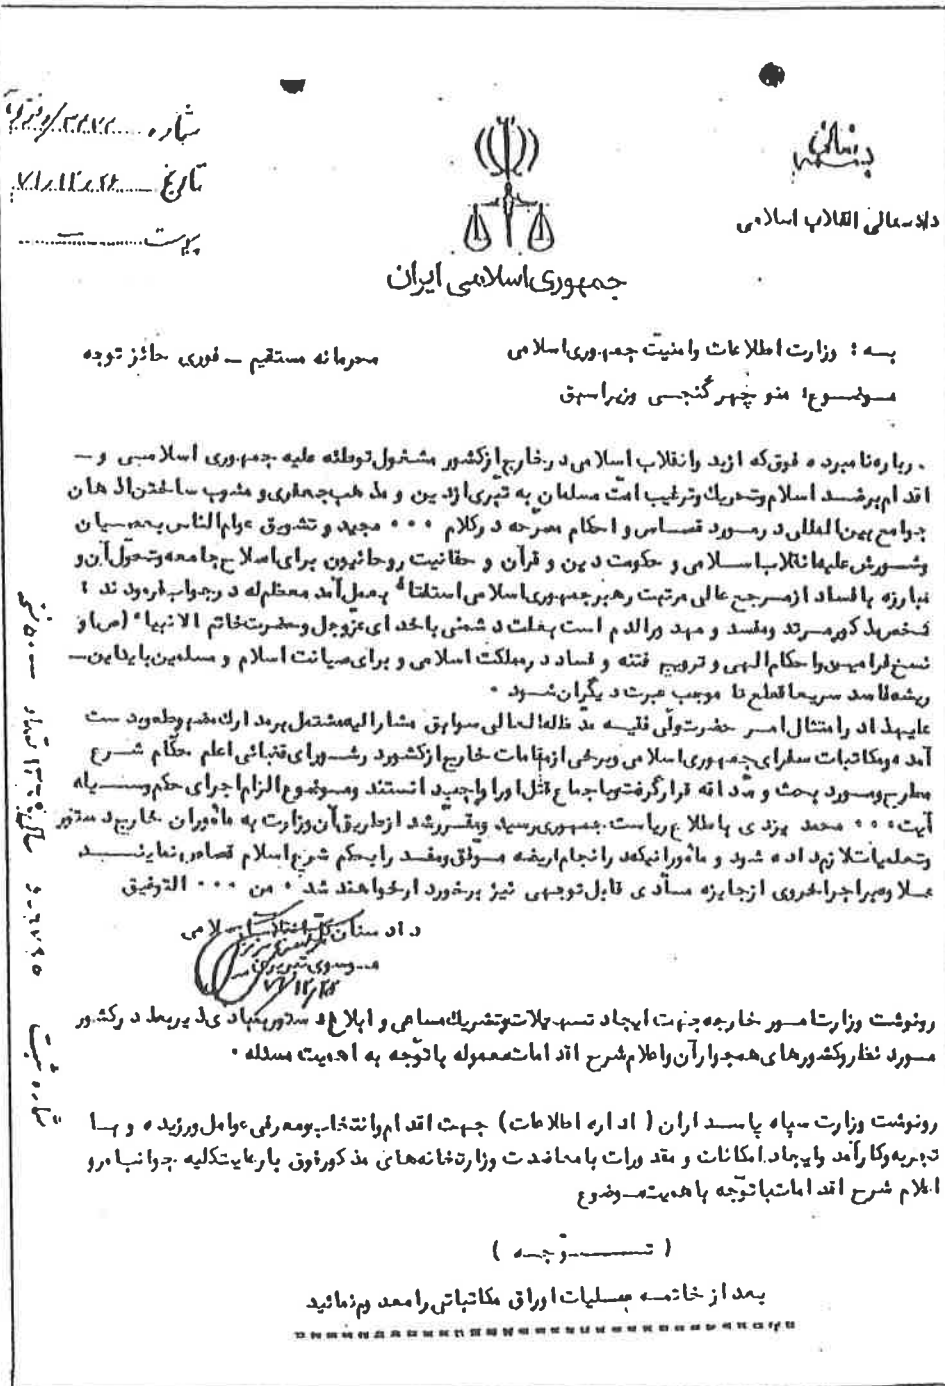 بسمه تعالی
دادسرای انقلاب اسلامی
جمهوری اسلامی ایران
شماره ۳۲۷۲
تاریخ ۷۱٫۱۱٫۲۶
پیوست
به : وزارت اطلاعات وامنیت جمهوری اسلامی
محرمانه مستقیم – فوری حائز توجه
موضوع: منوچهر گنجی وزیر اسبق
درباره نامبرده فوق که از بدو انقلاب اسلامی در خارج از کشور مشغول توطئه علیه جمهوری اسلامی و –
اقدام برضد اسلام وتحریك وترغیب امت مسلمان به تبری از دین و مذهب جعفری و مشوب ساختن اذهان
جوامع بین المللی در مورد قصاص و احکام مصرحه در کلام ۰۰۰ مجید و تشویق عوام الناس بعصیان
وشورش علیه انقلاب اسلامی و حکومت دین و قرآن و حقانیت روحانیون برای اصلاح جامعه وتحول آن و
مبارزه با فساد از مرجع عالی مرتبت رهبر جمهوری اسلامی استفتاء بعمل آمد معظم له در جواب فرمودند :
شخص مذکور مرتد ومفسد و مهدورالدم است بعلت دشمنی با خدای عزوجل وحضرت خاتم الانبیاء (ص) و
نسخ فرامین واحکام الهی و ترویج فتنه و فساد در مملکت اسلامی و برای صیانت اسلام و مسلمین باید این –
ریشه فاسد سریعا قطع تا موجب عبرت دیگران شود ۰
علیهذا در امتثال امر حضرت ولی فقیه مد ظله العالی سوابق مشارالیه مشتمل بر مدارك مضبوطه وبدست
آمده ومکاتبات سفرای جمهوری اسلامی وبرخی از مقامات خارج از کشور در شورای قضائی اعلم حکام شرع
مطرح ومورد بحث و مداقه قرار گرفت وباجماع قتل اورا واجب دانستند وموضوع الزام اجرای حکم وسیله
آیت ۰۰۰ محمد یزدی باطلاع ریاست جمهوری رسید ومقرر شد از طریق آن وزارت به مأموران خارج دستور
وتعلیمات لازم داده شود و مأمورانیکه در انجام فریضه موفق ومفسد را بحکم شرع اسلام قصاص نمایند
علاوه بر اجر اخروی از جایزه مادی قابل توجهی نیز برخوردار خواهند شد ۰ من ۰۰۰ التوفیق
دادستان کل انقلاب اسلامی
موسوی تبریزی
رونوشت وزارت امور خارجه جهت ایجاد تسهیلات وتشریك مساعی و ابلاغ دستور بمبادی ذیربط در کشور
مورد نظر وکشورهای همجوار آن واعلام شرح اقدامات معموله با توجه به اهمیت مسئله ۰
رونوشت وزارت سپاه پاسداران ( اداره اطلاعات ) جهت اقدام وانتخاب ومعرفی عوامل ورزیده و با
تجربه وکارآمد وایجاد امکانات و مقدورات با معاضدت وزارتخانه های مذکور فوق با رعایت کلیه جوانب امر و
اعلام شرح اقدامات با توجه باهمیت موضوع
( توجه )
بعد از خاتمه عملیات اوراق مکاتباتی را معدوم نمائید
شماره ثبت